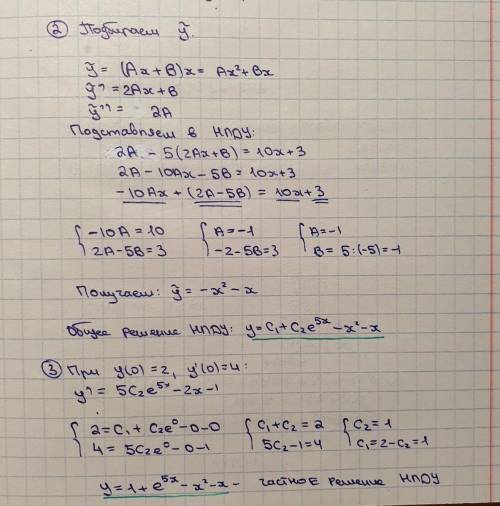 ② Подбираем ỹ.
ỹ = (Ax + B)x = Ax² + Bx
ỹ' = 2Ax + B
ỹ'' = 2A
Подставляем в НЛДУ:
2A - 5(2Ax+B) = 10x+3
2A - 10Ax - 5B = 10x+3
-10Ax + (2A-5B) = 10x+3
{ -10A = 10 { A = -1 { A = -1
{ 2A-5B = 3 { -2-5B = 3 { B = 5:(-5) = -1
Получаем: ỹ = -x² - x
Общее решение НЛДУ: y = C₁ + C₂e⁵ˣ - x² - x
③ При y(0) = 2, y'(0) = 4:
y' = 5C₂e⁵ˣ - 2x - 1
{ 2 = C₁ + C₂e⁰ - 0 - 0 { C₁ + C₂ = 2 { C₂ = 1
{ 4 = 5C₂e⁰ - 0 - 1 { 5C₂ - 1 = 4 { C₁ = 2 - C₂ = 1
y = 1 + e⁵ˣ - x² - x - частное решение НЛДУ